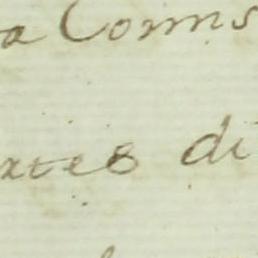 a Comis
xtes di